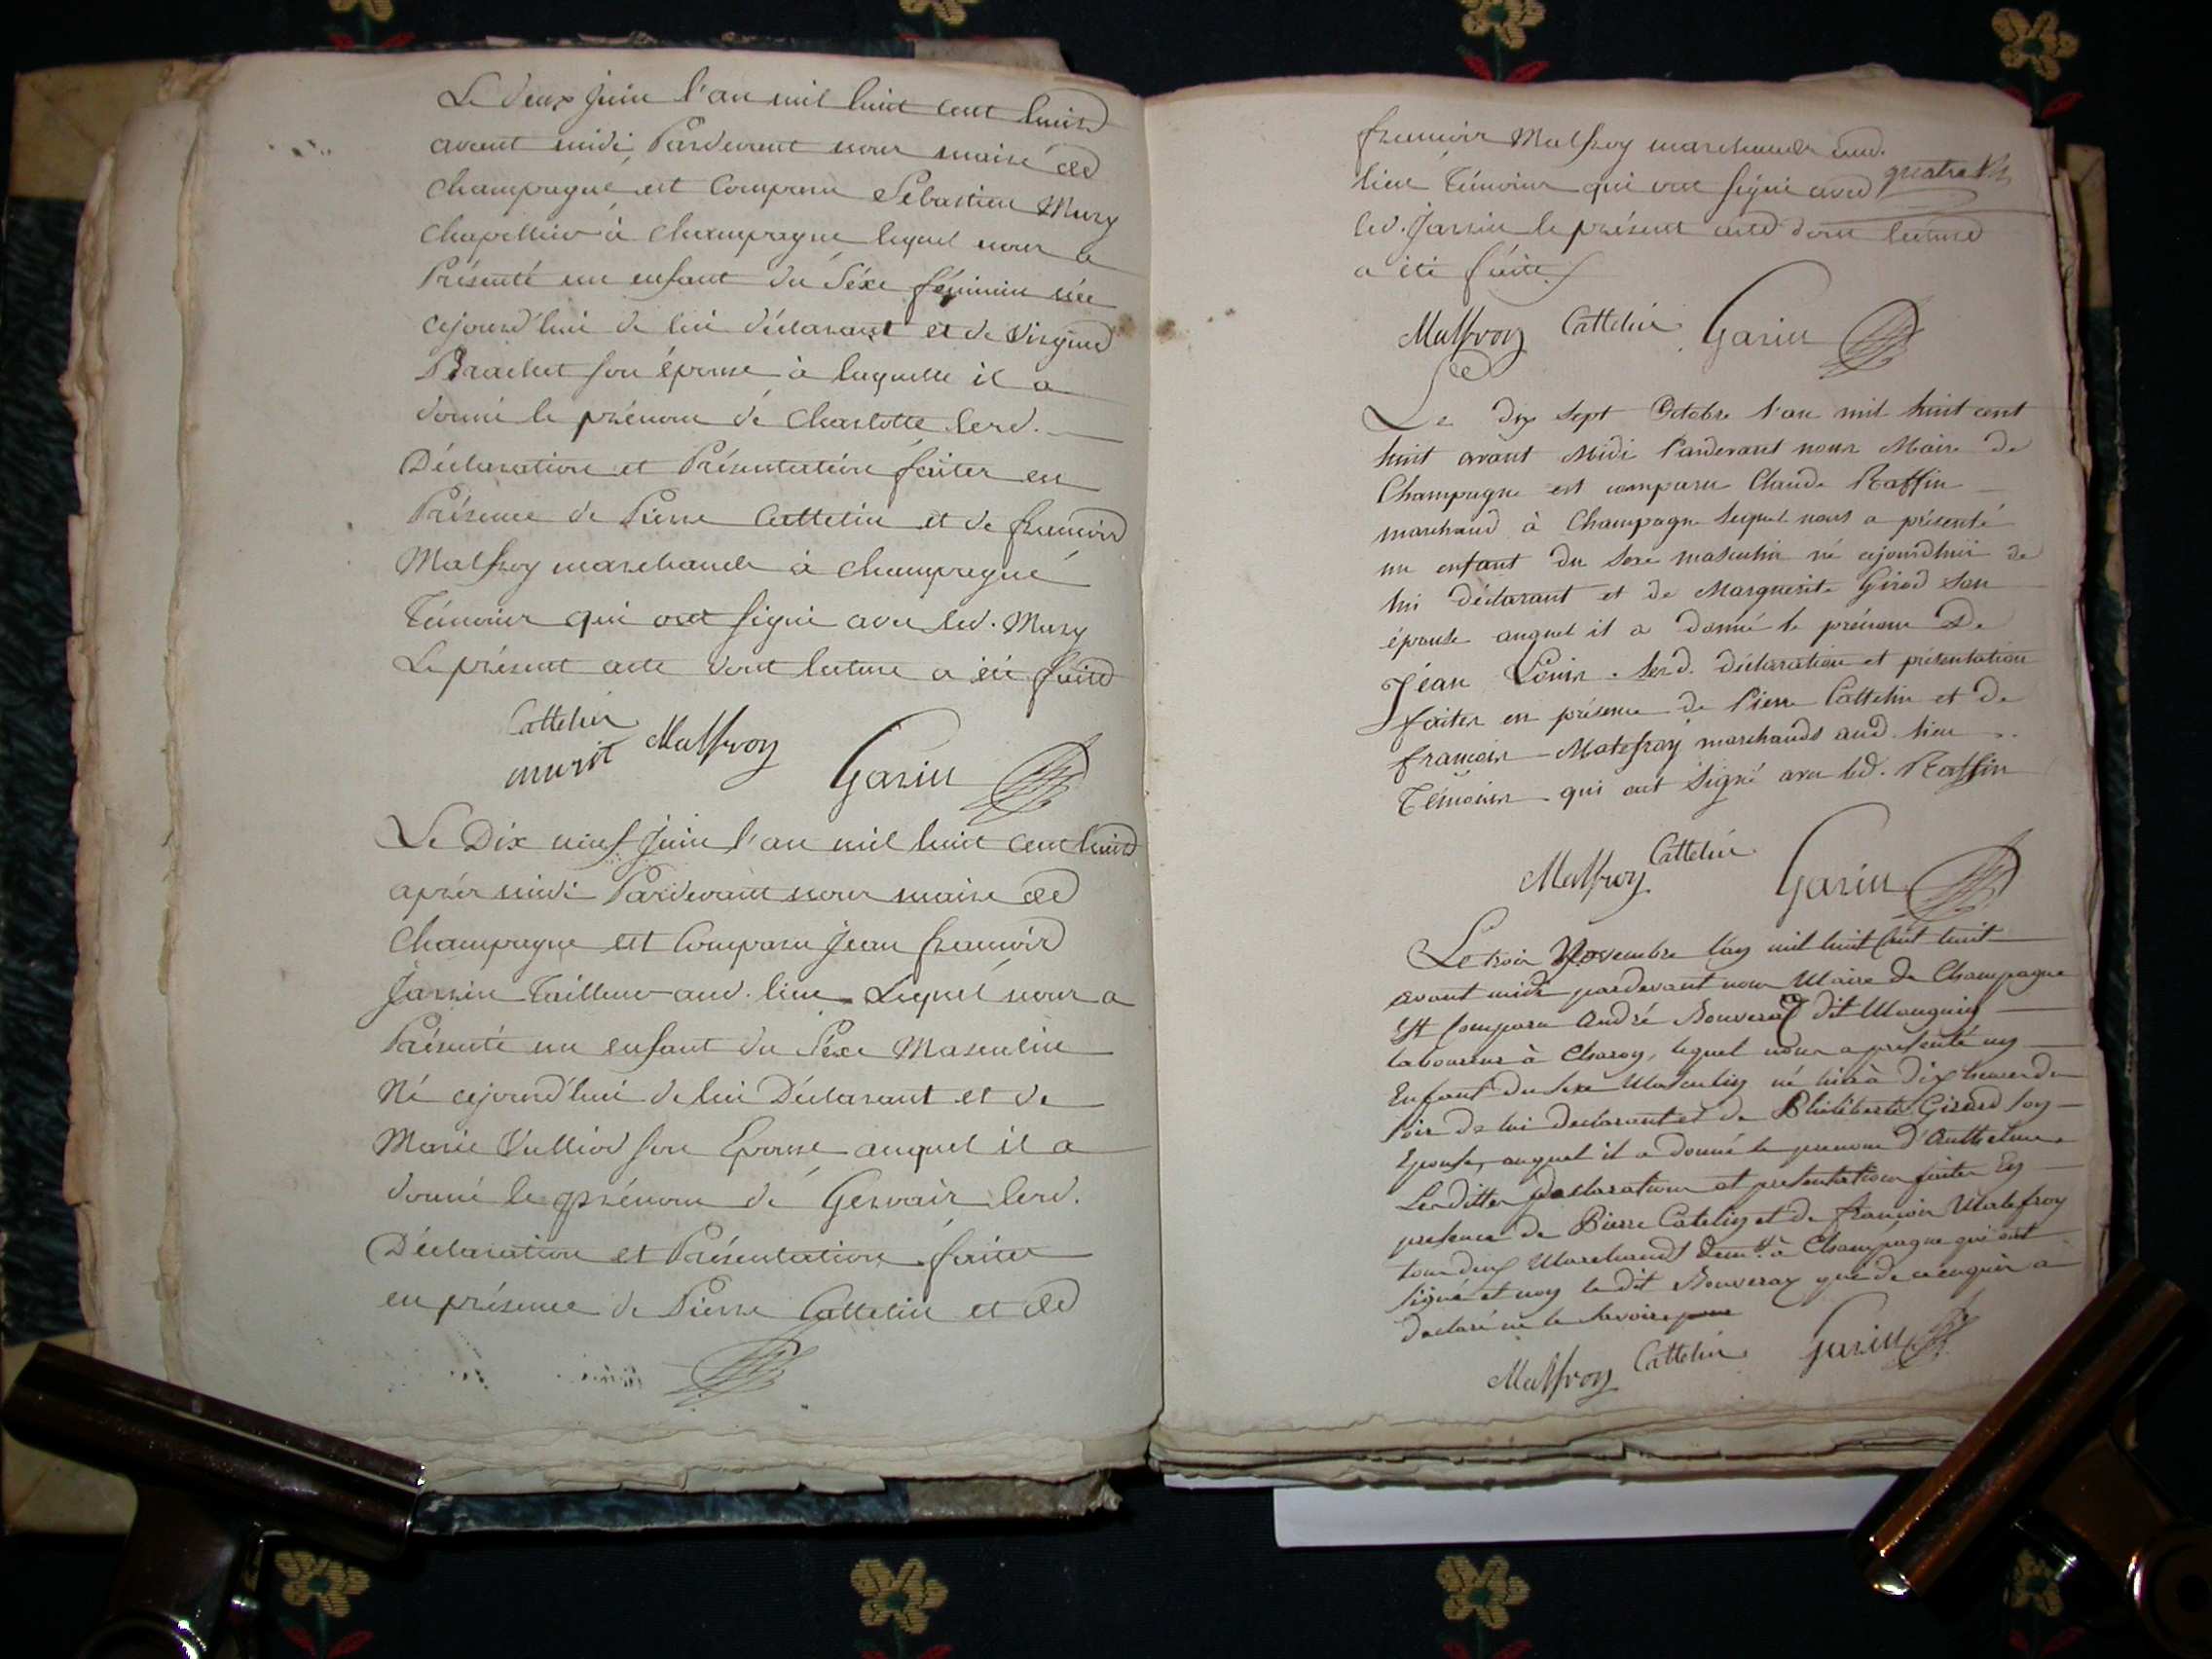 Le deux Juin l'an mil huit cent huit
avant midi Pardevant nous maire de
Champagne est Comparu Sébastien Mury
Chapellier à Champagne lequel nous a
Présenté un enfant du Séxe féminin née
cejourd'hui de lui déclarant et de
Brachet son épouse à laquelle il a
donné le prénom de Charlotte lesd.
Déclaration et Présentation faites en
Présence de Pierre Cattelin et de francois
Malfroy marchands à Champagne
Témoins qui ont signé avec led. Mury
Le présent acte dont lecture a été faite
Cattelin
murit Malfroy Garin
Le Dix neuf Juin l'an mil huit cent huit
après midi Pardevant nous maire de
Champagne est Comparu Jean francois
Jarsin Tailleur aud. lieu Lequel nous a
Présenté un enfant du Séxe Masculin
Né cejourd'hui de lui Déclarant et de
Marie Vulliod son Epouse auquel il a
donné le prénom de Gervais lesd.
Déclaration et Présentation faites
en présence de Pierre Cattelin et de
francois Malfroy marchands aud.
lieu Témoins qui ont signé avec
led. Jarsin le présent acte dont lecture
a été faite
Malfroy Cattelin Garin
Le dix sept Octobre l'an mil huit cent
huit avant Midi Pardevant nous Maire de
Champagne est comparu Claude Raffin
marchand à Champagne lequel nous a présenté
un enfant du sexe masculin né cejourdhui de
lui déclarant et de Marguerite Girod son
épouse auquel il a donné le prénom De
Jean Louis. lesd. déclaration et présentation
faites en présence de Pierre Cattelin et de
francois Malefroy marchands aud. lieu
Témoins qui ont signé avec led. Raffin
Malfroy Cattelin Garin
Le trois Novembre l'an mil huit Cent huit
avant midi pardevant nous Maire de Champagne
Est Comparu André Bouveray dit Manguin
laboureur à Charoy, lequel nous a présenté un
Enfant du sexe Masculin né hier à dix heures du
soir de lui declarant et de Philiberte Girard son
Epouse, auquel il a donné le prenom d'Anthelme
Lesdittes Declaration et presentation faites En
presence de Pierre Catelin et de francois Malefroy
tous deux Marchands dem.t à Champagne qui ont
signé et non le dit Bouveray qui de ce enquis a
declaré ne le savoir
Malfroy Cattelin Garin